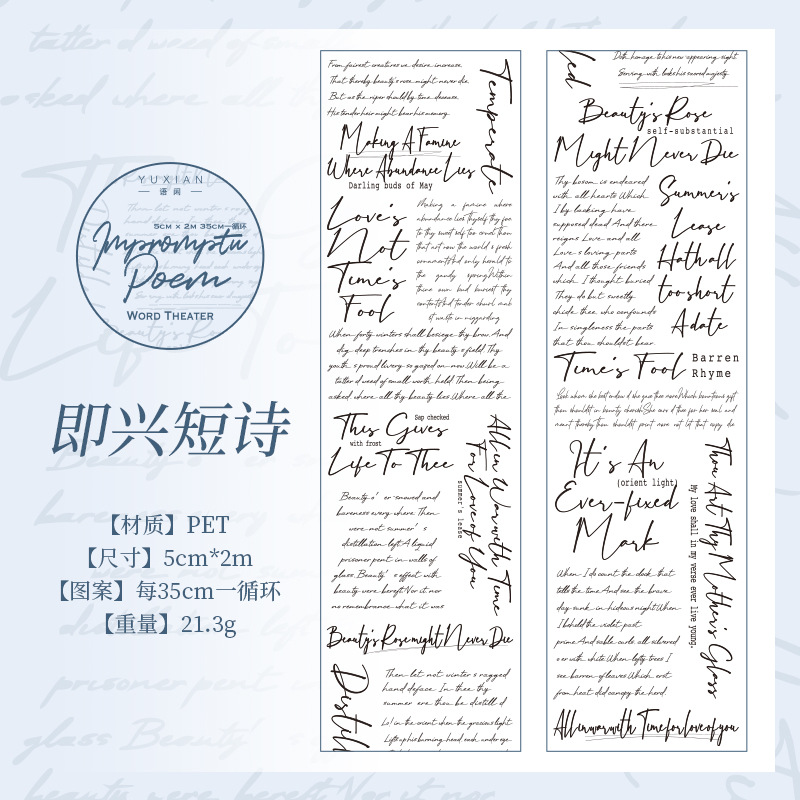 YUXIAN
语 阅
5CM × 2M 35CM一循环
Impromptu
Poem
WORD THEATER
即兴短诗
【材质】PET
【尺寸】5cm*2m
【图案】每35cm一循环
【重量】21.3g
From fairest creatures we desire increase.
That thereby beauty's rose might never die.
But as the riper should by time decease.
His tender heir might bear his memory.
Temperate
Making A Famine
Where Abundance Lies
Darling buds of May
Love's
Not
Time's
Fool
Making a famine where
abundance lies Thyself thy foe
to thy sweet self too cruel Thou
that art now the world's fresh
ornament And only herald to
the gaudy spring Within
thine own bud buriest thy
content And tender churl mak
st waste in niggarding
When forty winters shall besiege thy brow And
dig deep trenches in thy beauty's field Thy
youth's proud livery so gazed on now Will be a
tatter'd weed of small worth held Then being
asked where all thy beauty lies Where all the
This Gives
Sap checked
with frost
Life To Thee
All in War with Time
For Love of You
summer's lease
Beauty o' er-snowed and
bareness every where Then
were not summer' s
distillation left A liquid
prisoner pent in walls of
glass Beauty' s effect with
beauty were bereft Nor it nor
no remembrance what it was
Beauty's Rose might Never Die
Distill
Then let not winter's ragged
hand deface In thee thy
summer ere thou be distill d
Lo! in the orient when the gracious light
Lifts up his burning head each under eye
led
Doth homage to his new appearing sight
Serving with looks his sacred majesty
Beauty's Rose
self-substantial
Might Never Die
Thy bosom is endeared
with all hearts Which
I by lacking have
supposed dead And there
reigns Love and all
Love's loving parts
And all those friends
which I thought buried
They do but sweetly
chide thee who confounds
In singleness the parts
that thou shouldst bear
Summer's
Lease
Hath all
too short
A date
Time's Fool
Barren
Rhyme
Look whom she best endow'd she gave thee more Which bounteous gift
thou shouldst in bounty cherish She carv'd thee for her seal and
meant thereby thou shouldst print more not let that copy die
It's An
(orient light)
Ever-fixed
Mark
Thou Art Thy Mother's Glass
My love shall in my verse ever live young.
When I do count the clock that
tells the time And see the brave
day sunk in hideous night When
I behold the violet past
prime And sable curls all silvered
o'er with white When lofty trees I
see barren of leaves Which erst
from heat did canopy the herd.
All in war with Time for love of you